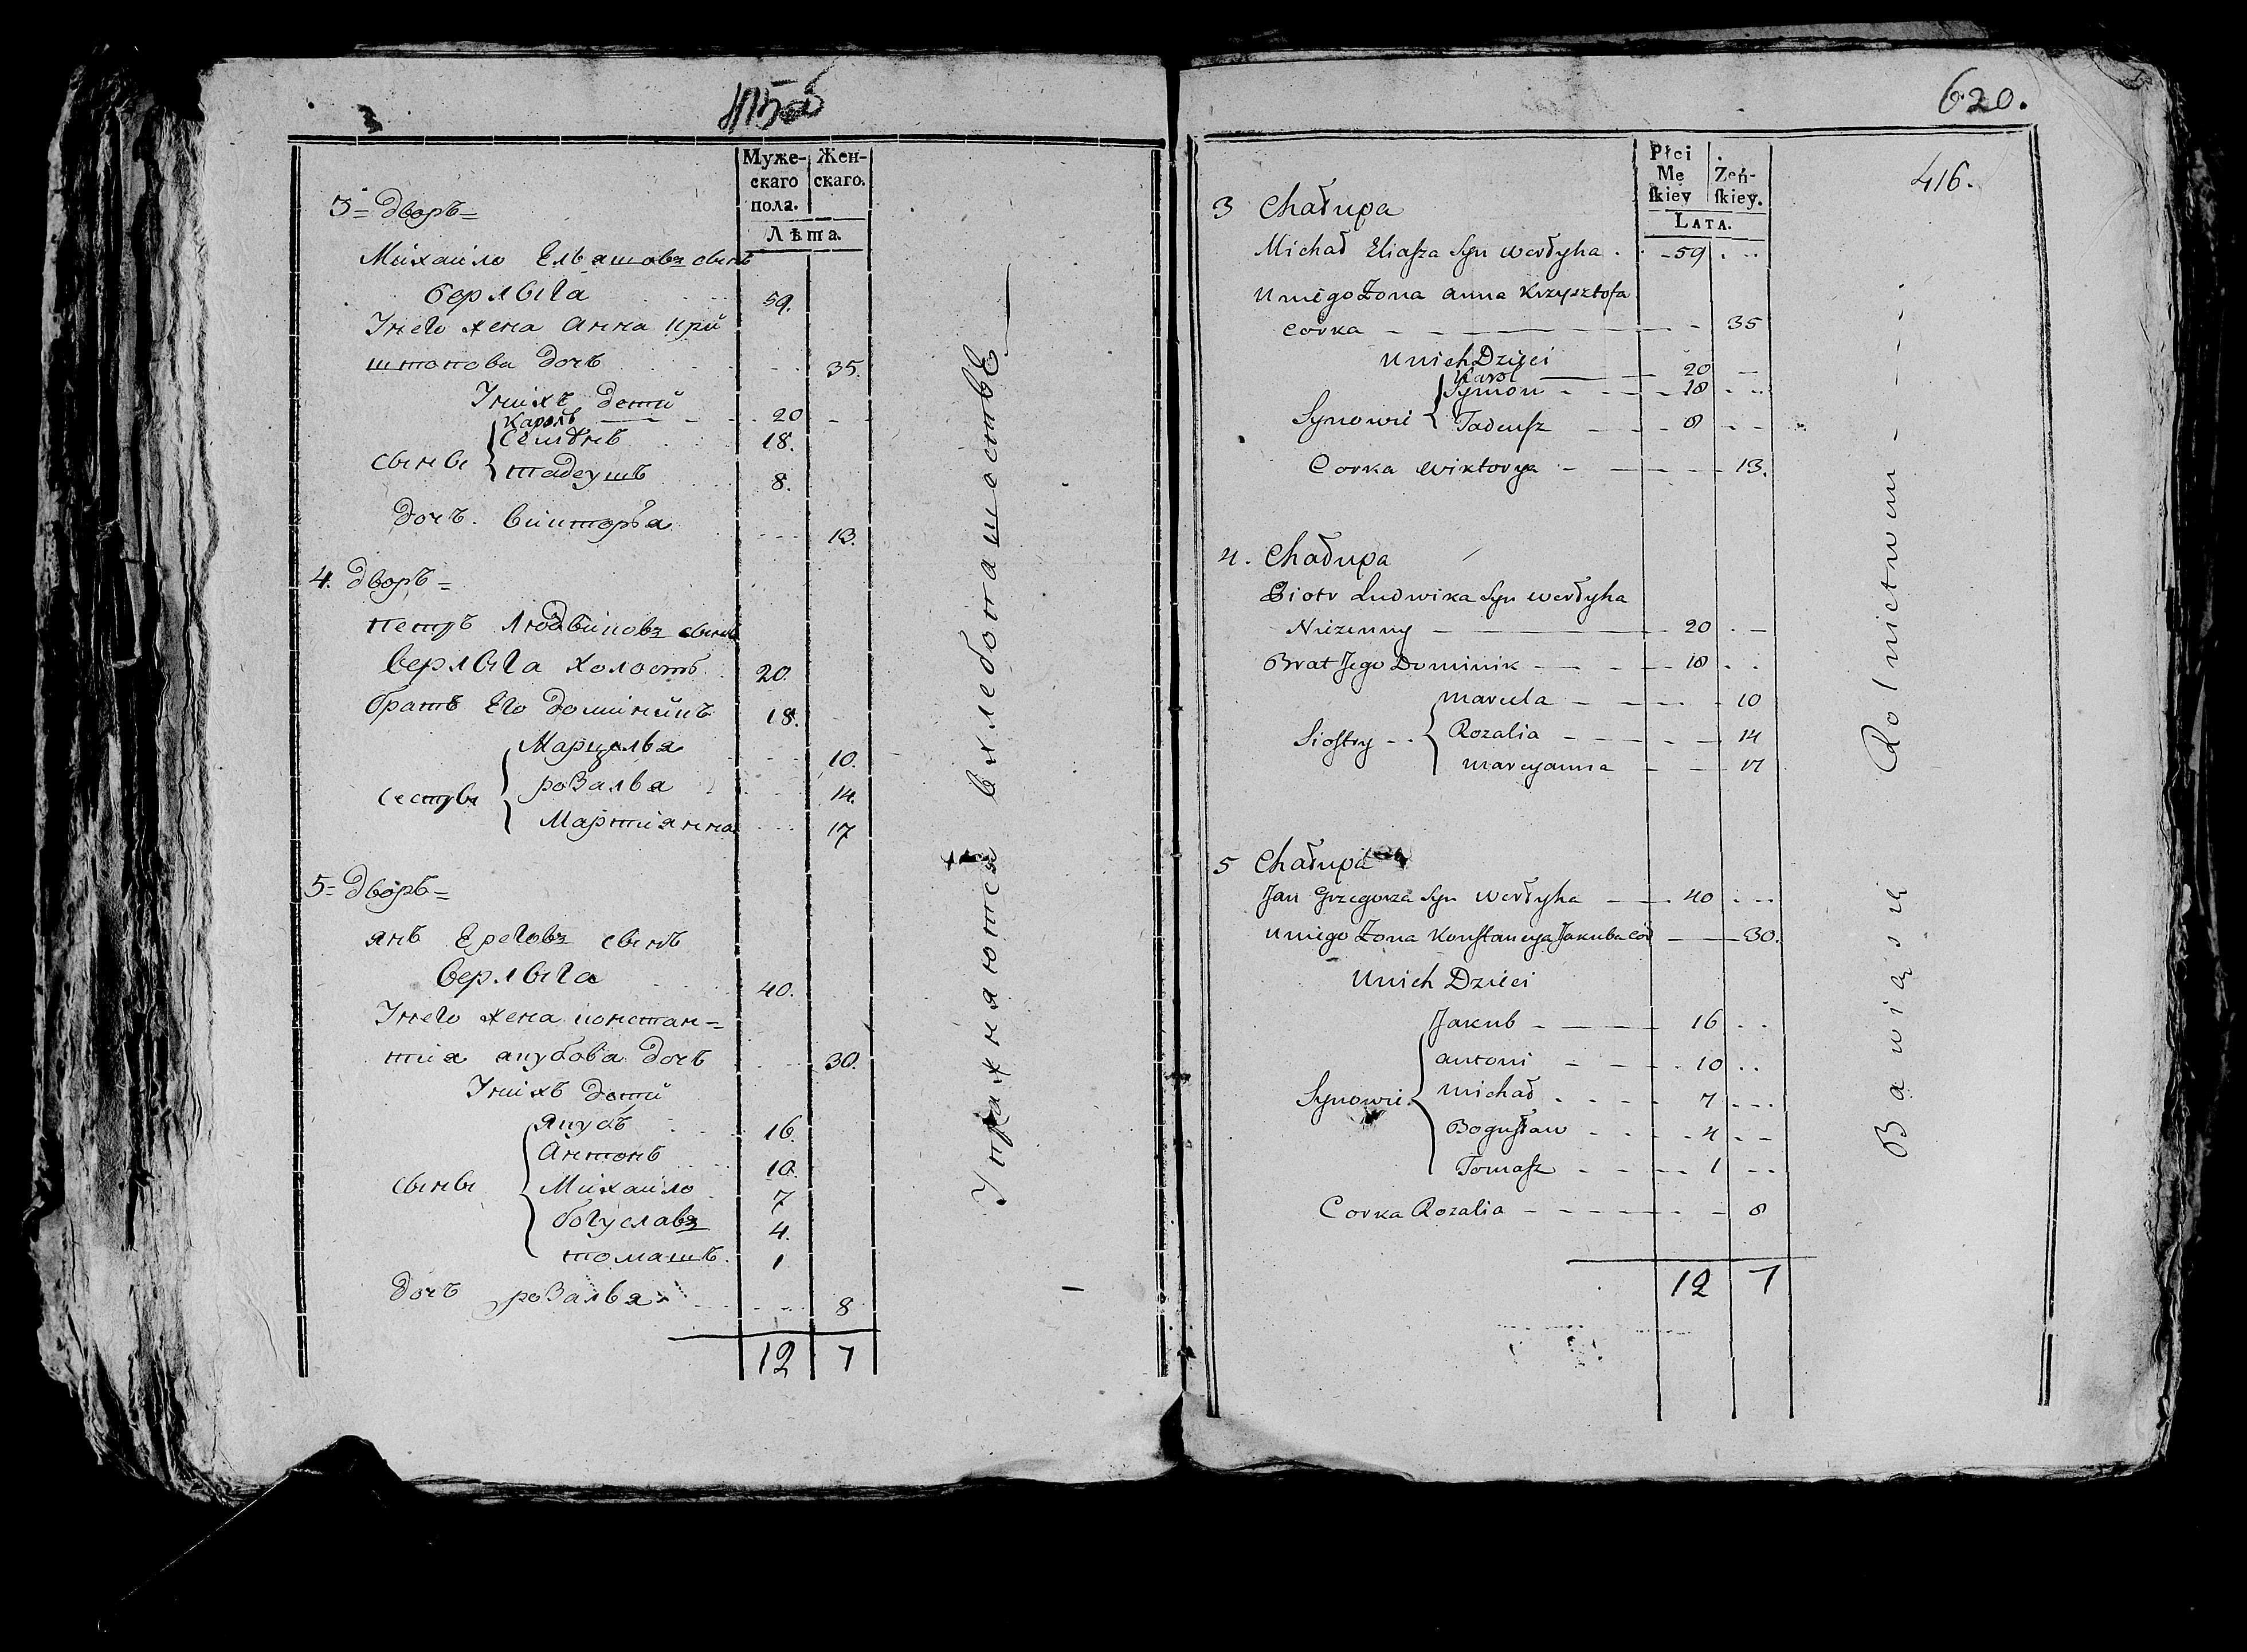 415об
3
Муже- Жен-
скаго скаго.
пола.
Лѣта.
3= дворъ=
Михаило Ельяшовъ сынъ
верлыга 59.
У него жена Анна кри
штопова дочь 35.
У нихъ дети
Кароль 20
Сымонъ 18.
сыны
тадеушъ 8.
дочь. викторья 13.
4. дворъ=
петръ Людвиковъ сынъ
верлыга холостъ 20.
братъ Его доминикъ 18.
Марцелья 10.
сестры розалья 14.
Марцианна 17
5= дворъ=
янъ Ереговъ сынъ
верлыга 40.
У него жена констан=
тия якубова дочь 30.
У нихъ дети
якубъ 16.
Антонъ 10.
сыны Михаило 7
богуславъ 4.
томашъ. 1
дочь розалья 8
12 7
Упражняются в хлебопашостве
620.
416.
Płci
Mę Żeń-
ſkiey ſkiey.
LATA.
3 Chałupa
Michał Eliaſza Syn werłyha 59
U niego Żona anna Krzysztofa
corka 35
U nich Dzieci
Karol 20
Symon 18
Synowie Tadeuſz 8
Corka wiktorya 13.
4. Chałupa
Piotr Ludwika Syn werłyha
Nieżenny 20
Brat Jego Dominik 18
marcela 10
Sioſtry Rozalia 14
marcyanna 17
5 Chałupa
Jan Grzegorza Syn werłyha 40
U niego Żona Konſtancya Jakuba cor 30.
U nich Dzieci
Jakub 16
antoni 10
Synowie michał 7
Boguſław 4
Tomaſz 1
Corka Rozalia 8
12 7
Bawią się Rolnictwem